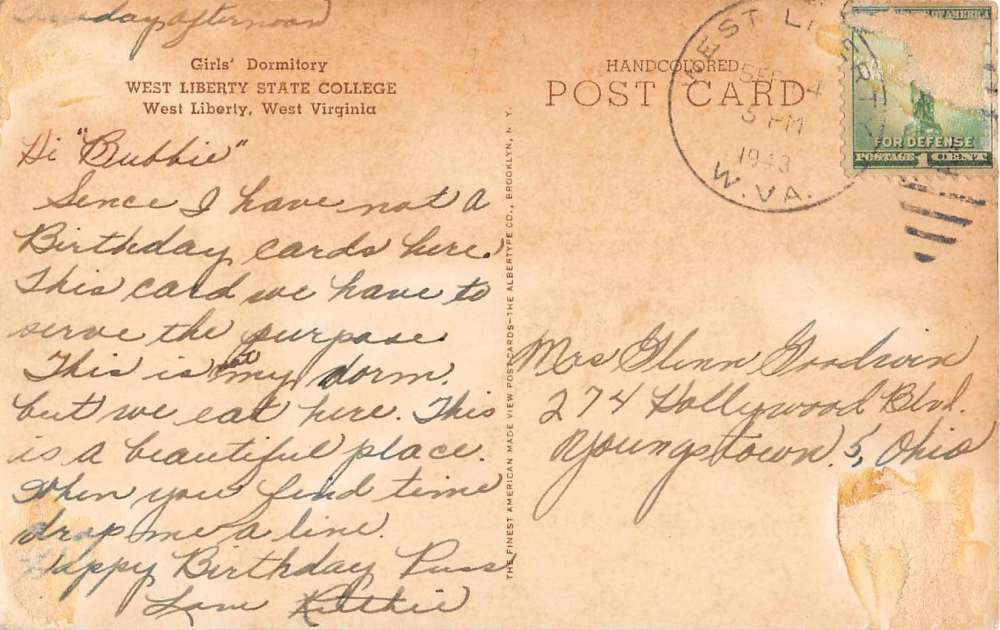 day afternoon
Girls' Dormitory
WEST LIBERTY STATE COLLEGE
West Liberty, West Virginia
Hi "Bubbie"
Since I have not a
Birthday cards here.
This card we have to
serve the purpose.
This is not my dorm.
but we eat here. This
is a beautiful place.
When you find time
drop me a line.
Happy Birthday Puss
Love Ruthie
THE FINEST AMERICAN MADE VIEW POST CARDS—THE ALBERTYPE CO., BROOKLYN, N. Y.
HANDCOLORED
POST CARD
WEST LIBERTY
SEP
4
5 PM
1943
W. VA.
OF AMERICA
FOR DEFENSE
POSTAGE 1 CENT
Mrs Glenn Goodwin
274 Hollywood Blvd.
Youngstown 5, Ohio